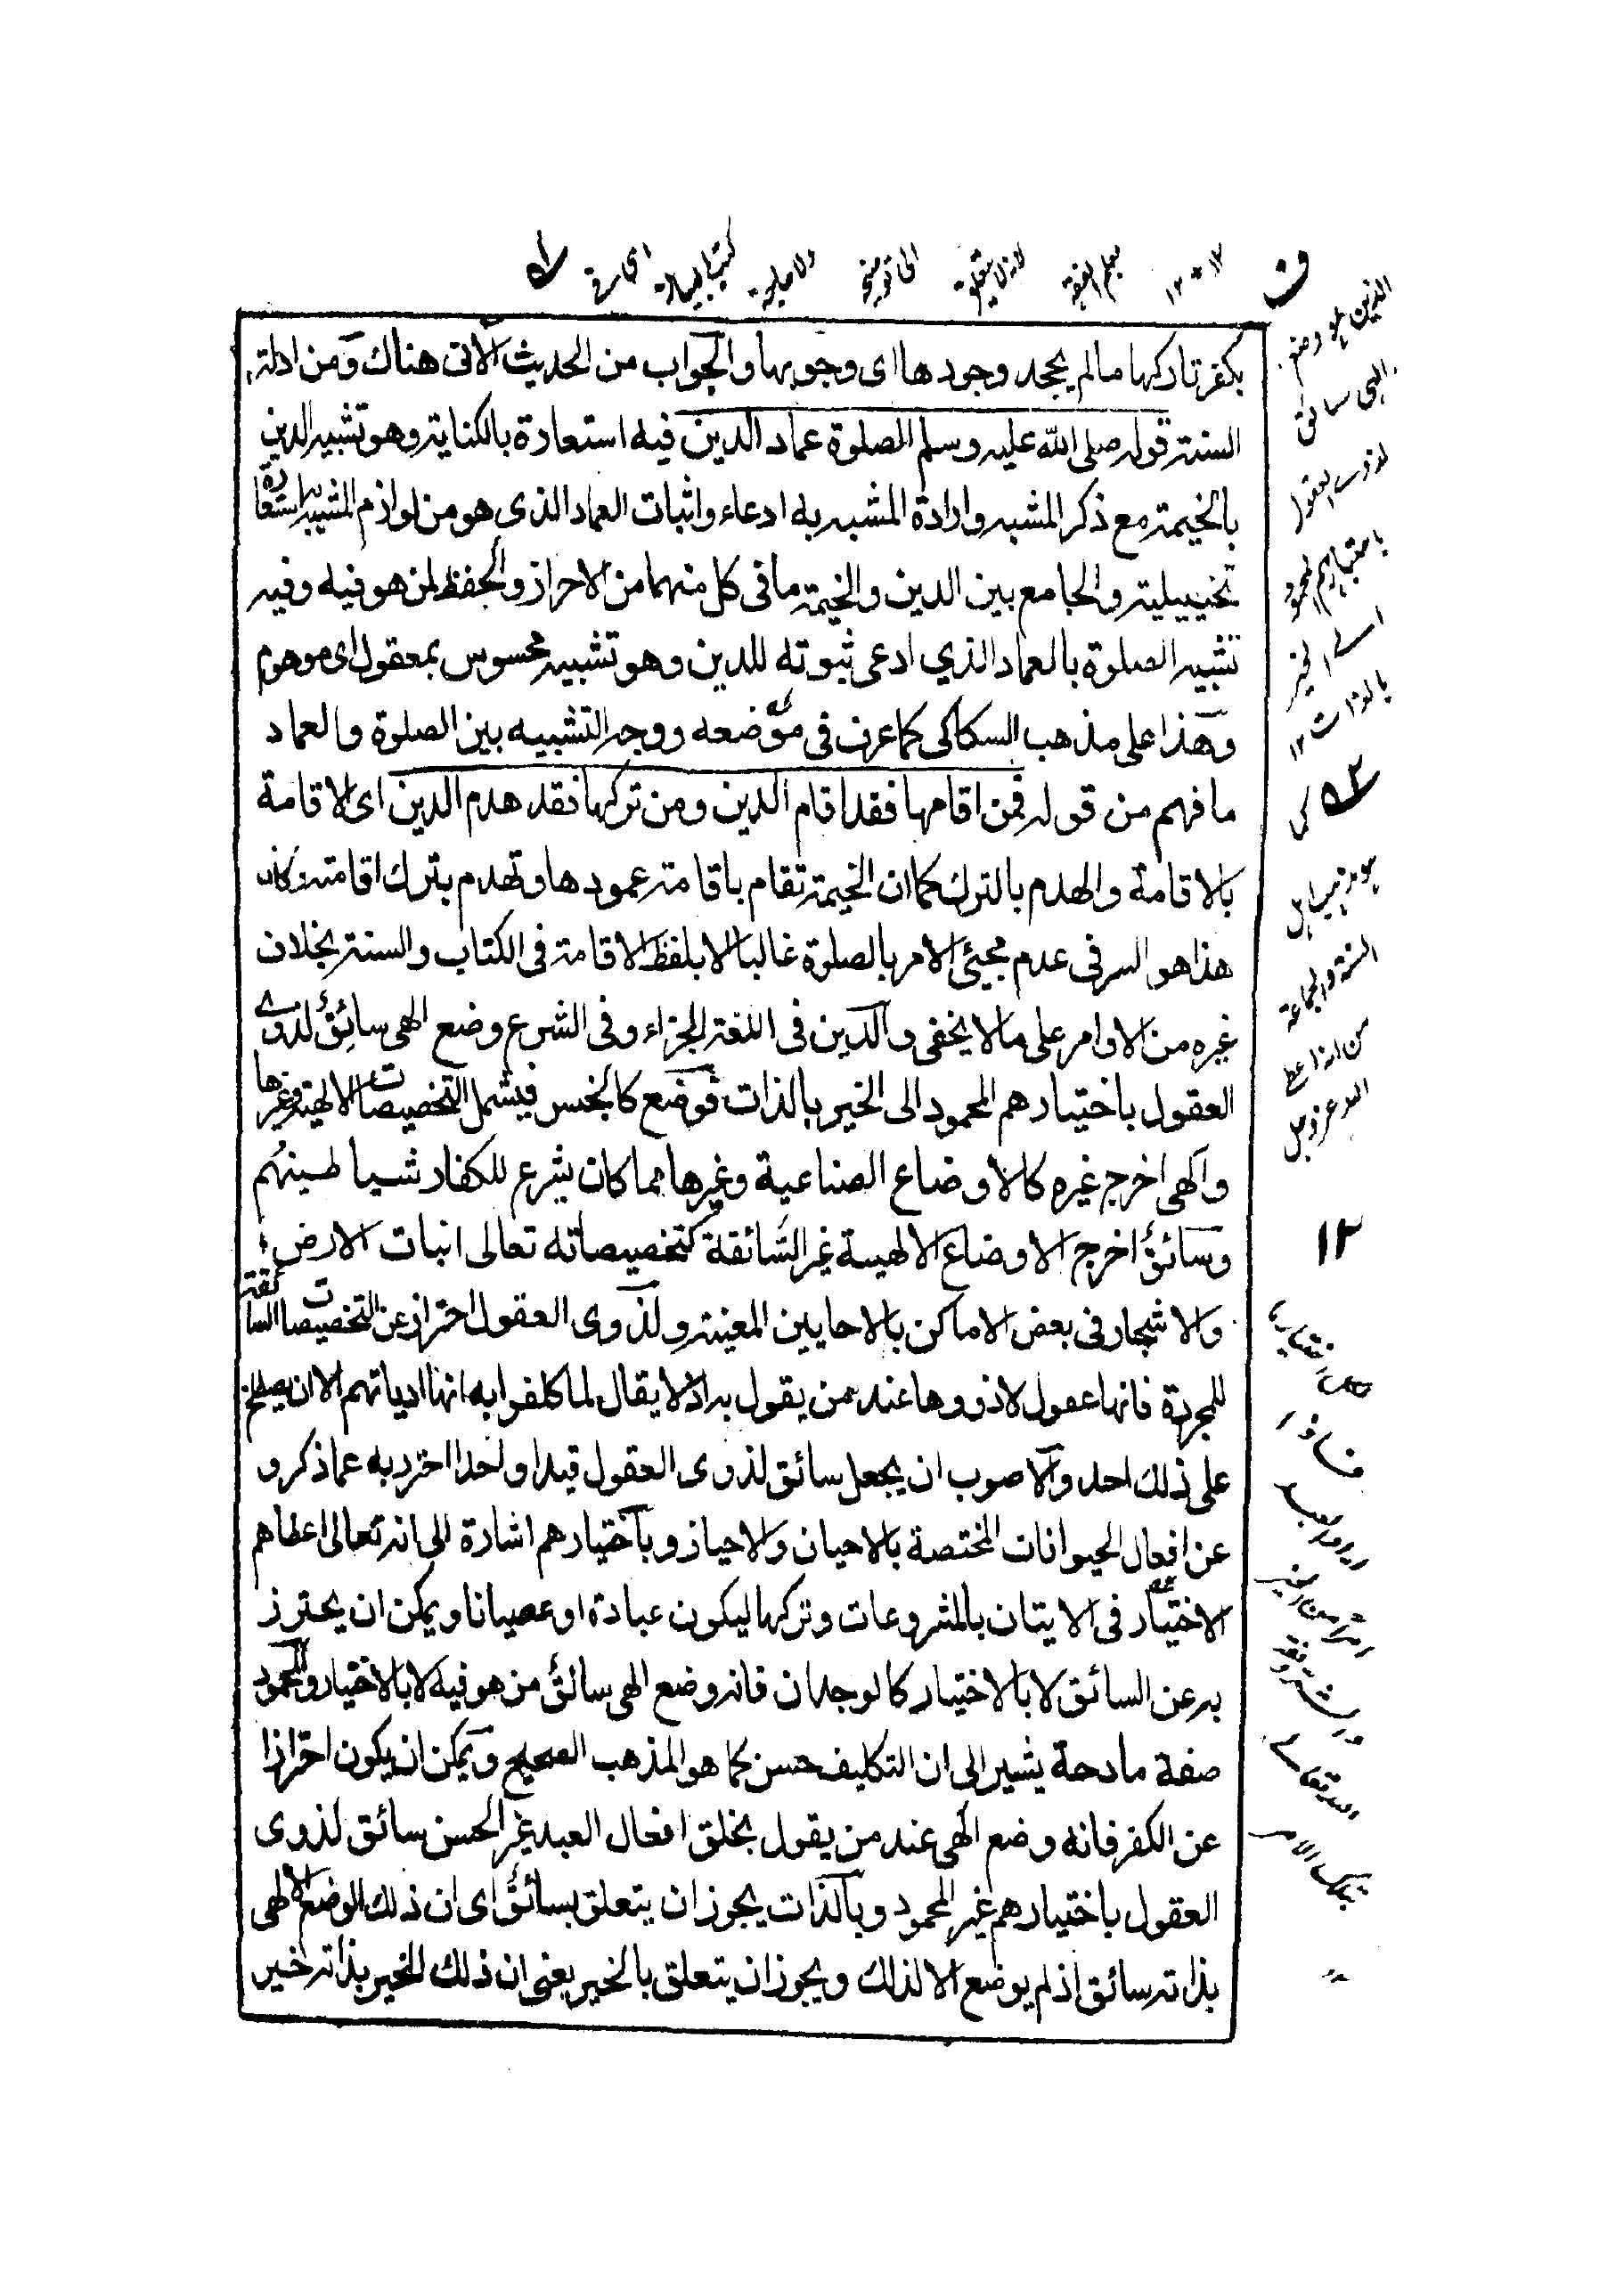 بكفر تاركها ما لم يجحد وجودها اى وجوبها والجواب من الحديث الآتى هناك ومن ادلة
السنة قوله صلى الله عليه وسلم الصلوة عماد الدين فيه استعارة بالكناية وهو تشبيه الدين
بالخيمة مع ذكر المشبه وارادة المشبه به ادعاء واثبات العماد الذى هو من لوازم المشبه به استعارة
تخييلية والجامع بين الدين والخيمة ما فى كل منهما من الاحراز والحفظ لمن هو فيه وفيه
تشبيه الصلوة بالعماد الذي ادعى ثبوته للدين وهو تشبيه محسوس بمعقول اى موهوم
وهذا على مذهب السكاكى كما عرف فى موضعه ووجه التشبيه بين الصلوة والعماد
ما فهم من قوله فمن اقامها فقد اقام الدين ومن تركها فقد هدم الدين اى الاقامة
بالاقامة والهدم بالترك كما ان الخيمة تقام باقامة عمودها وتهدم بترك اقامته وكان
هذا هو السر فى عدم مجيئ الامر بالصلوة غالبا الا بلفظ الاقامة فى الكتاب والسنة بخلاف
غيره من الاوامر على ما لا يخفى والدين فى اللغة الجزاء وفى الشرع وضع الهى سائق لذوے
العقول باختيارهم المحمود الى الخير بالذات فوضع كالجنس فيشمل التخصيصات الالهية وغيرها
والهى اخرج غيره كالاوضاع الصناعية وغيرها مما كان يشرع للكفار شياطينهم
وسائق اخرج الاوضاع الالهية غير السائقة كتخصيصاته تعالى انبات الارض
والاشجار فى بعض الاماكن بالاحايين المعينة ولذوى العقول احتراز عن التخصيصات السائقة
للمجردة فانها عقول لا ذووها عند من يقول به اذ لا يقال لما كلفوا به انها اديانهم الا ان يصطلح
على ذلك احد والاصوب ان يجعل سائق لذوى العقول قيدا واحدا احترز به عما ذكر و
عن افعال الحيوانات المختصة بالاحيان والاحياز وباختيارهم اشارة الى انه تعالى اعطاهم
الاختيار فى الايتان بالمشروعات وتركها ليكون عبادة او عصيانا ويمكن ان يحترز
به عن السائق لا بالاختيار كالوجدان فانه وضع الهى سائق من هو فيه لا بالاختيار والمحمود
صفة مادحة يشير الى ان التكليف حسن كما هو المذهب الصحيح ويمكن ان يكون احترازا
عن الكفر فانه وضع الهى عند من يقول بخلق افعال العبد غير الحسن سائق لذوى
العقول باختيارهم غير المحمود وبالذات يجوز ان يتعلق بسائق اى ان ذلك الوضع الالهى
بذاته سائق اذ لم يوضع الا لذلك ويجوز ان يتعلق بالخير يعنى ان ذلك الخير بذاته خير
الدين هو وضع
الهى سائق
لذوے العقول
باختيارهم المحمود
الے الخير
بالذات ١٢
٥٢
السنة والجماعة
١٢